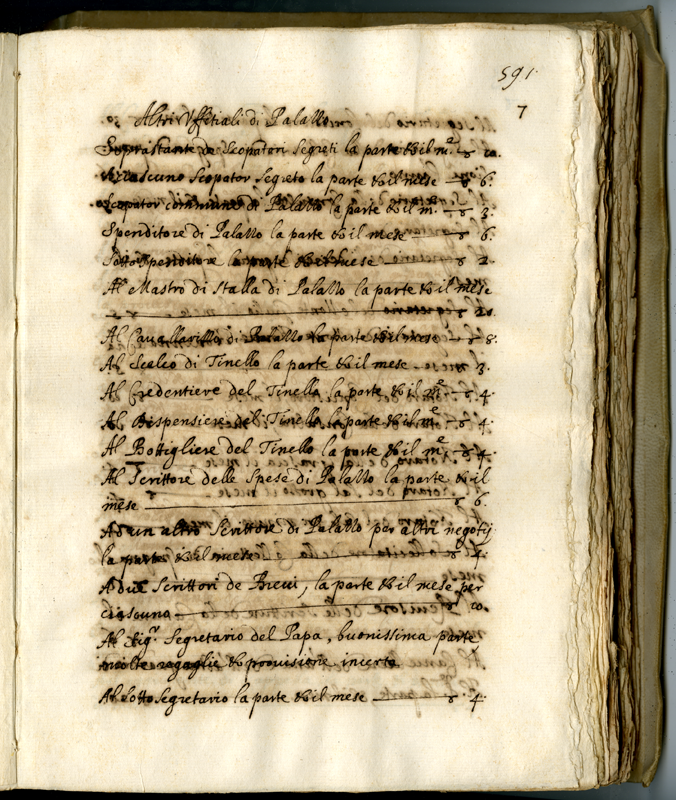 591.
7
Altri Uffitiali di Palazzo
Soprastante de Scopatori Segreti la parte & il m.e ▽ 10.
Scopator Segreto la parte & il mese ▽ 6.
Scopator commune di Palazzo la parte & il m. ▽ 3.
Spenditore di Palazzo la parte & il mese ▽ 6.
Sotto Spenditore la parte & il mese ▽ 2.
Al Mastro di Stalla di Palazzo la parte & il mese
▽
Al Cavallarizzo di Palazzo la parte & il mese ▽ 8.
Al Scalco di Tinello la parte & il mese ▽ 3.
Al Credentiere del Tinello la parte & il m.e ▽ 4.
Al Dispensiere del Tinello la parte & il m.e ▽ 4.
Al Bottigliere del Tinello la parte & il m.e ▽ 4.
Al Scrittore delle Spese di Palazzo la parte & il
mese ▽ 6.
Ad un altro Scrittore di Palazzo per altri negotij
la parte & il mese ▽ 4.
A due Scrittori de Brevi, la parte & il mese per
ciascuno ▽
Al Sig.r Segretario del Papa, buonissima parte,
molte regaglie & provisione incerte
Al Sotto Segretario la parte & il mese ▽ 4.